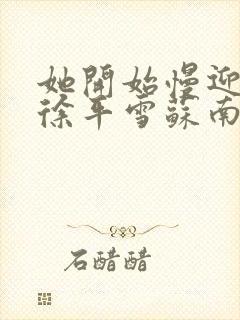 她開始慢迎
徐平雪蘇南
石醋醋